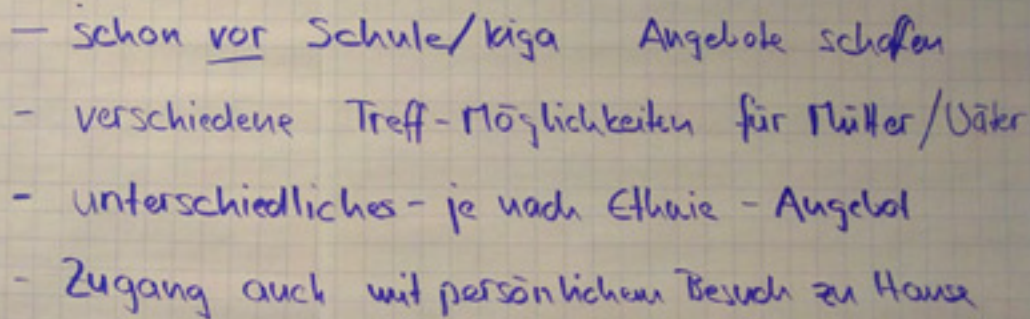 - schon vor Schule/kiga Angebote schaffen
- verschiedene Treff-Möglichkeiten für Mütter/Väter
- unterschiedliches - je nach Ethnie - Angebot
- Zugang auch mit persönlichem Besuch zu Hause